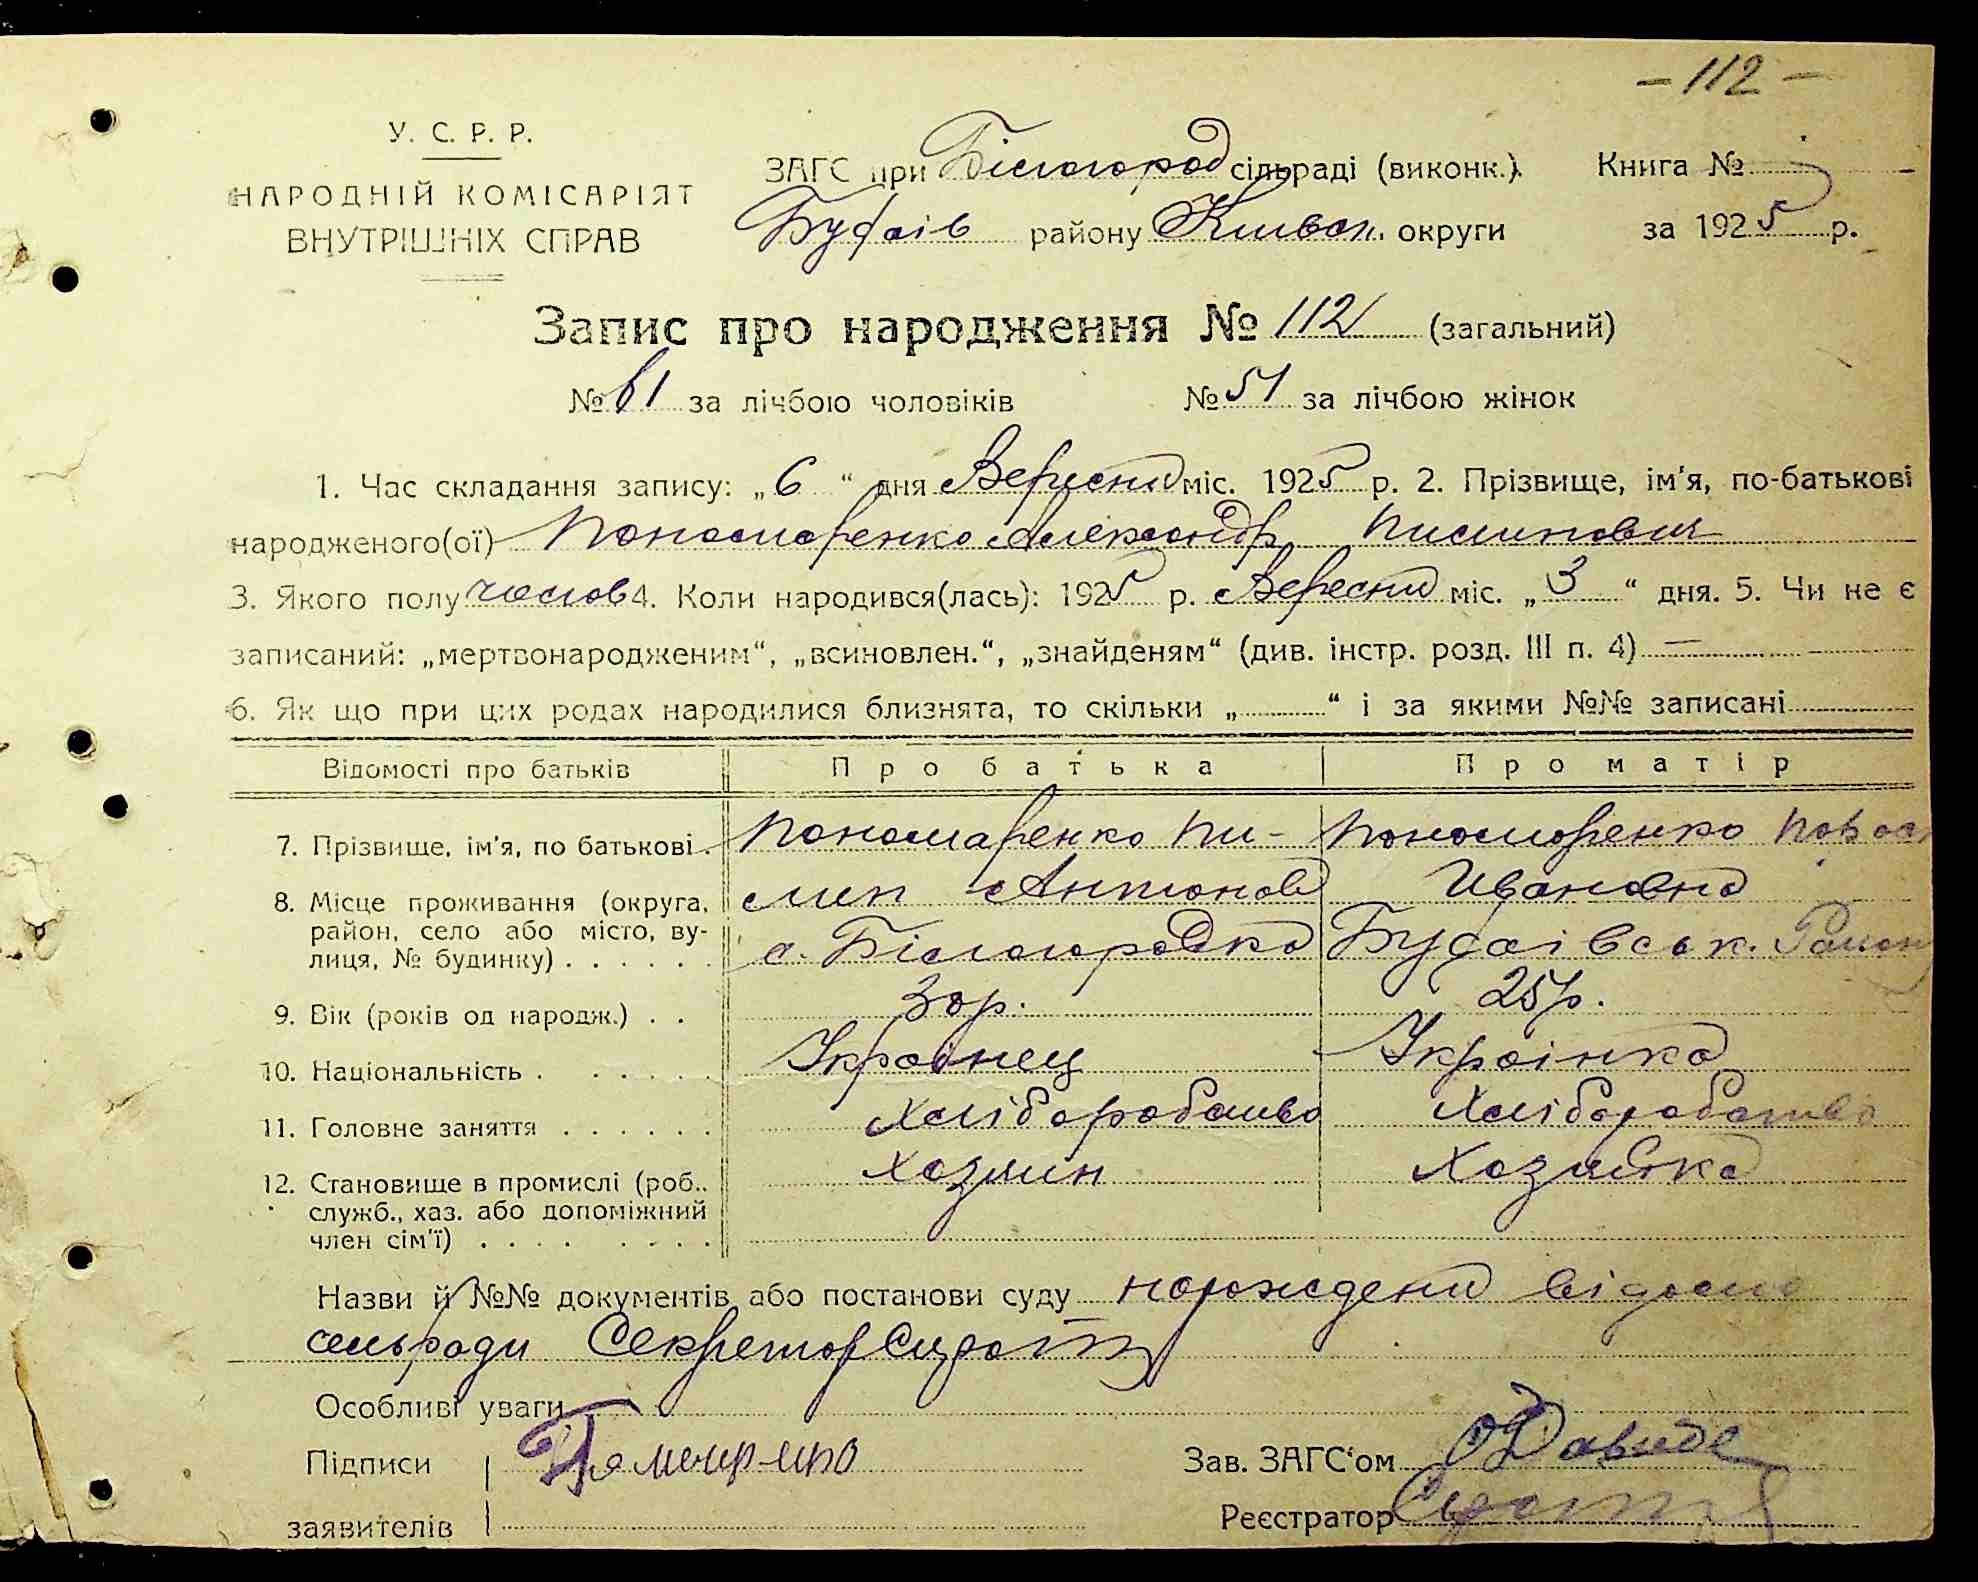 - 112 -
У. С. Р. Р.
НАРОДНІЙ КОМІСАРІЯТ
ВНУТРІШНІХ СПРАВ
ЗАГС при Білогород сільраді (виконк.). Книга №
Будаів району Київск. округи за 1925 р.
Запис про народження № 112 (загальний)
№ 61 за лічбою чоловіків № 51 за лічбою жінок
1. Час складання запису: „6“ дня Вересня міс. 1925 р. 2. Прізвище, ім'я, по-батькові
народженого(ої) Пономаренко Александр Пилипович
3. Якого полу чолов 4. Коли народився(лась): 1925 р. Вересня міс. „3“ дня. 5. Чи не є
записаний: „мертвонародженим“, „всиновлен.“, „знайденям“ (див. інстр. розд. III п. 4) —
6. Як що при цих родах народилися близнята, то скільки „ “ і за якими №№ записані
Відомості про батьків Про батька Про матір
7. Прізвище, ім'я, по батькові. Пономаренко Пи- Пономаренко
лип Антонов Ивановна
8. Місце проживання (округа,
район, село або місто, ву-
лиця, № будинку) . . . . . . с. Білогородка Будаівськ. Район
9. Вік (років од народж.) . . 30р. 25р.
10. Національність . . . . . . Українец Українка
11. Головне заняття . . . . . . Хліборобство Хліборобство
12. Становище в промислі (роб.. Хозяин Хозяйка
служб., хаз. або допоміжний
член сім'ї) . . . . . . . .
Назви й №№ документів або постанови суду порождения відомо
сельради Секретар Сирота
Особливі уваги
Підписи Зав. ЗАГС'ом
заявителів Реєстратор